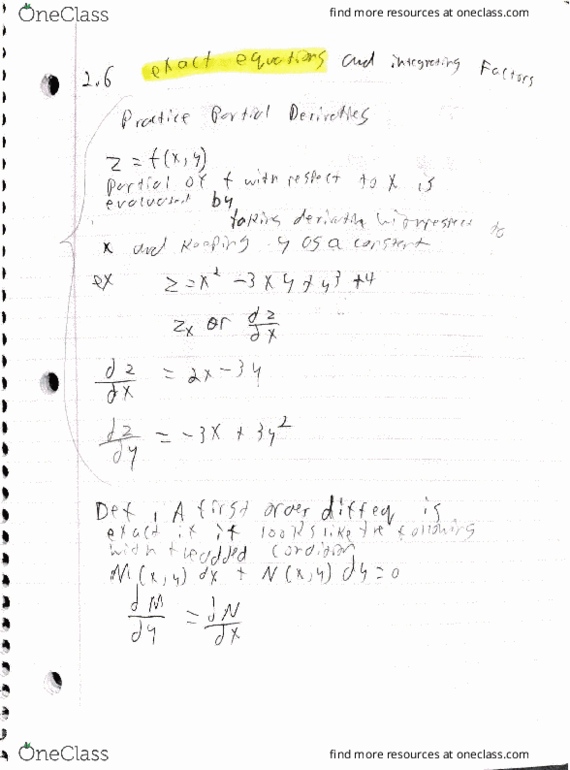 OneClass
find more resources at oneclass.com
2.6 exact equations and integrating Factors
Practice Partial Derivatives
z = f(x,y)
Partial of f with respect to x is
evaluated by
taking derivative with respect to
x and keeping y as a constant
ex z = x² - 3xy + y³ + 4
zx or dz/dx
dz/dx = 2x - 3y
dz/dy = -3x + 3y²
Def, A first order diffeq is
exact if it looks like the following
with the added condition
M(x,y) dx + N(x,y) dy = 0
dM/dy = dN/dx
OneClass
find more resources at oneclass.com